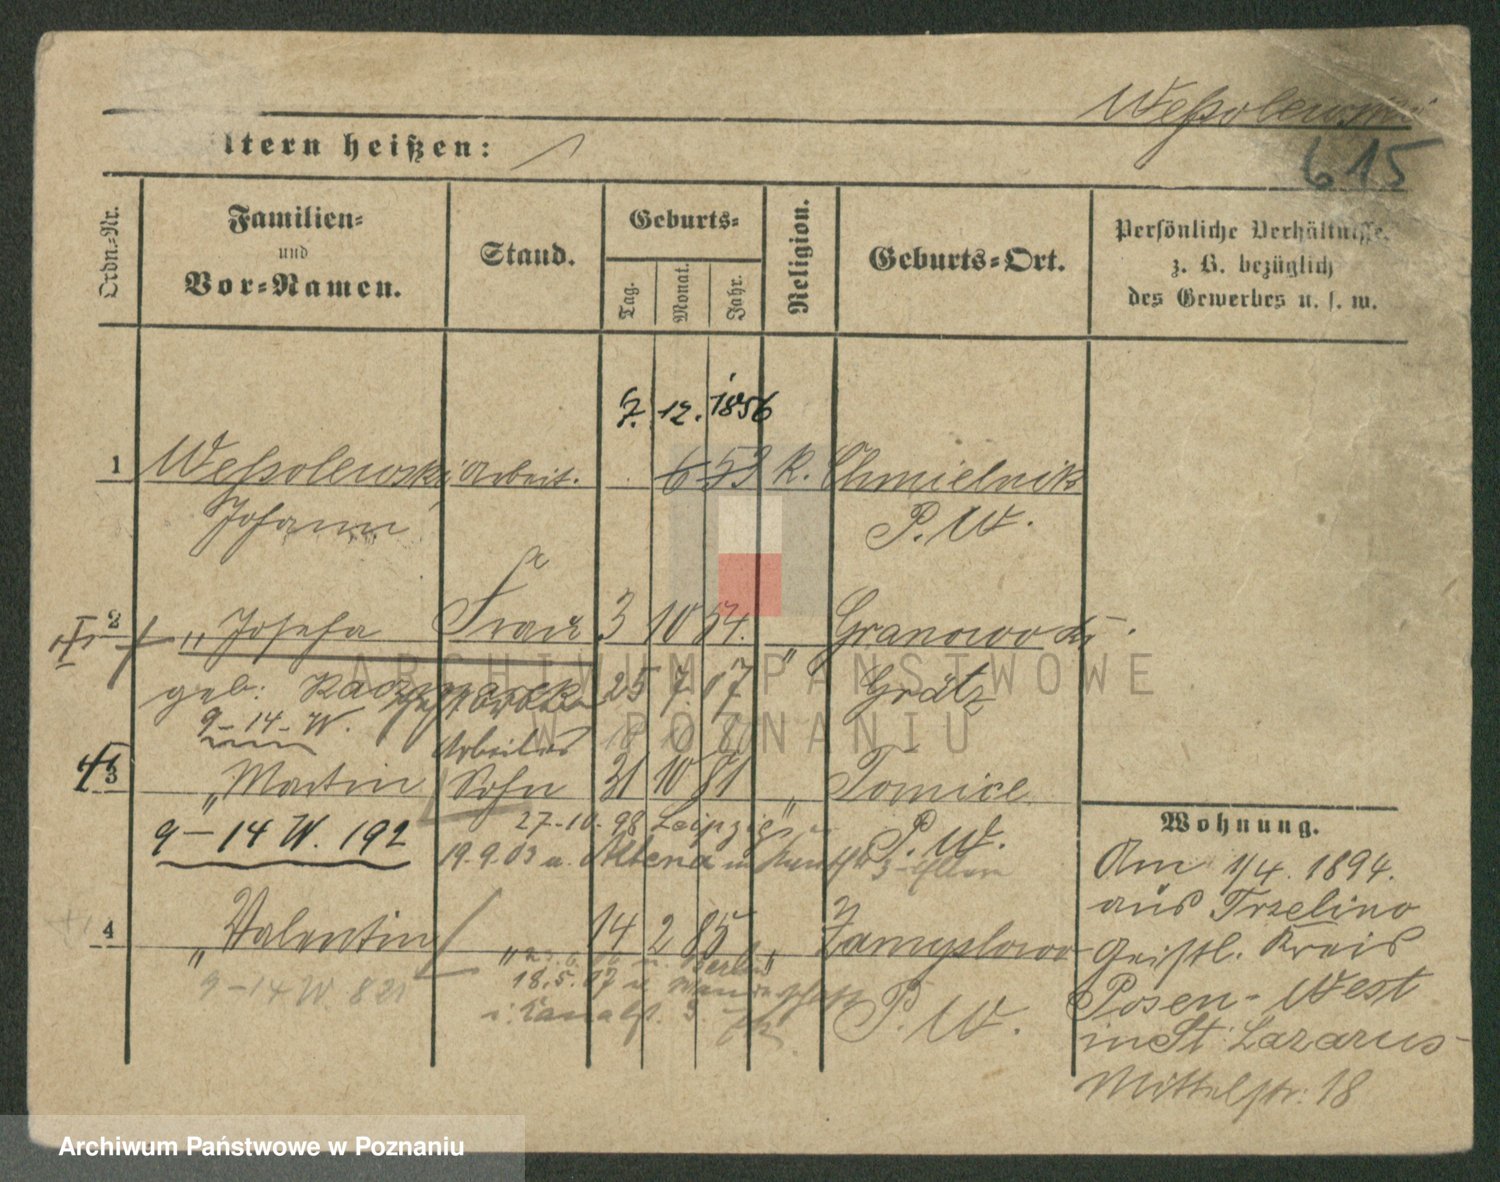 Weßolewski
615
ltern heißen:
Ordn.-Nr.
Familien-
und
Vor-Namen.
Stand.
Geburts-
Tag.
Monat.
Jahr.
Religion.
Geburts-Ort.
Persönliche Verhältnisse,
z. B. bezüglich
des Gewerbes u. s. w.
7. 12. 1856
1 Weßolewski Arbeit. 6 53 K. Chmielnik
Johann P. W.
2 " Josefa Frau 3 10 54. " Granowo Kr.
geb: 25 7 07 Grätz
9-14-W. gestorben
Arbeiter 18 10 80
3 " Martin Sohn 31 10 81 " Tomice
9-14 W. 192 27-10-98 Leipzig P. W.
19.9.03 a. Altena
4 " Valentin " 14 2 85 " Zamyslowo
9-14 W. 821 18.5.07 P. W.
Wohnung.
Am 1/4. 1894.
aus Trzelino
Geistl. Kreis
Posen-West
in St Lazarus-
Mittelstr: 18
ARCHIWUM PAŃSTWOWE
W POZNANIU
Archiwum Państwowe w Poznaniu